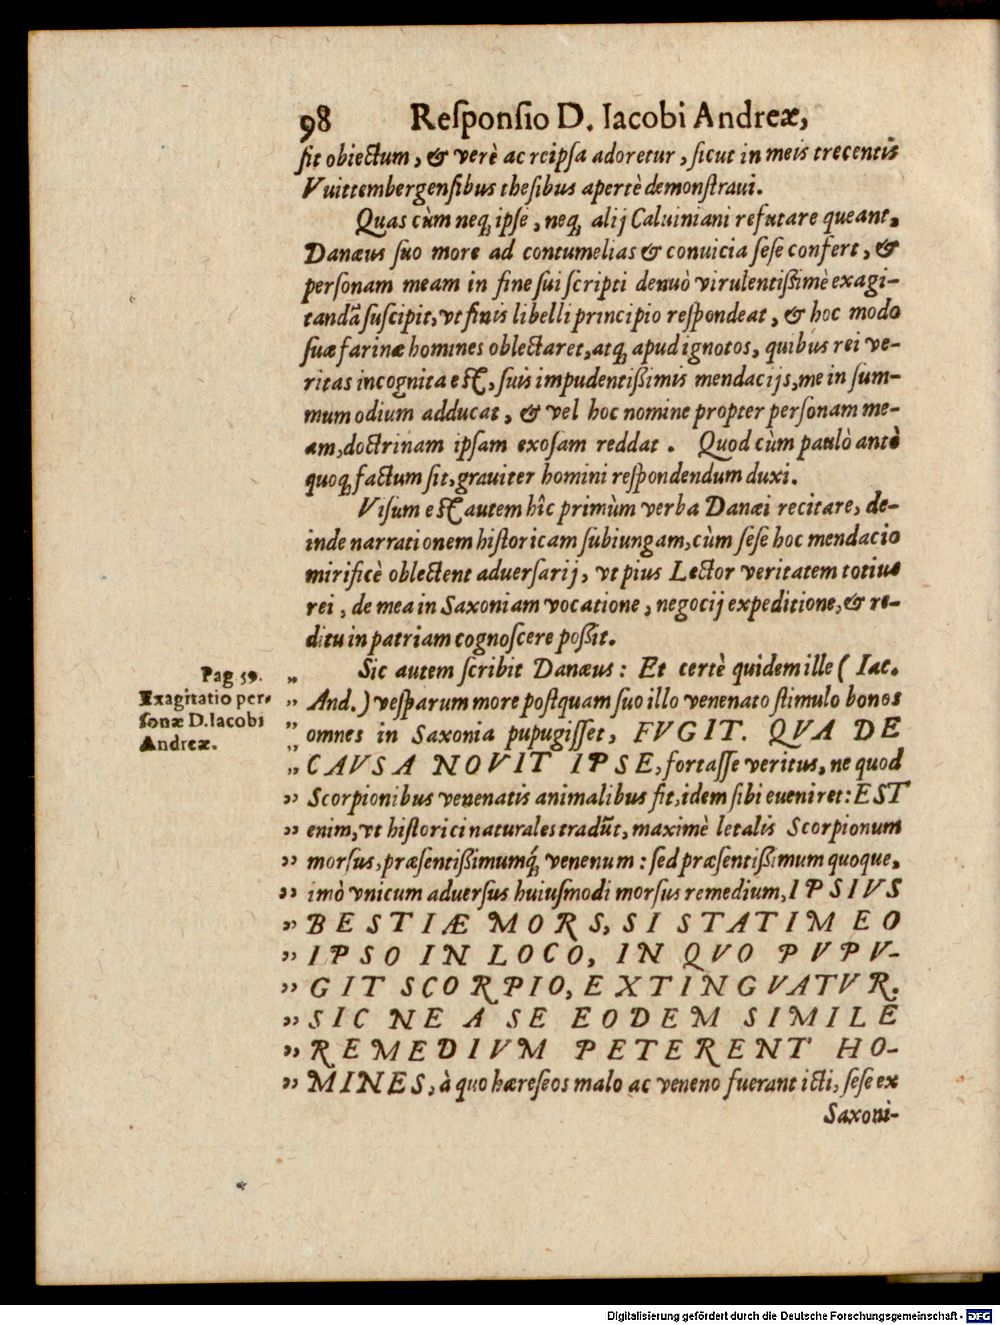 98 Reſponſio D. Iacobi Andreæ,
ſit obiectum, & verè ac reipſa adoretur, ſicut in meis trecentis
Vuittembergenſibus theſibus apertè demonſtraui.
Quas cùm neq; ipſe, neq; alij Caluiniani refutare queant,
Danæus ſuo more ad contumelias & conuicia ſeſe confert, &
perſonam meam in fine ſui ſcripti denuò virulentißimè exagi-
tandã ſuſcipit, vt finis libelli principio reſpondeat, & hoc modo
ſuæ farinæ homines oblectaret, atq; apud ignotos, quibus rei ve-
ritas incognita eſt, ſuis impudentißimis mendacijs, me in ſum-
mum odium adducat, & vel hoc nomine propter perſonam me-
am, doctrinam ipſam exoſam reddat. Quod cùm paulò antè
quoq; factum ſit, grauiter homini reſpondendum duxi.
Viſum eſt autem hîc primùm verba Danæi recitare, de-
inde narrationem hiſtoricam ſubiungam, cùm ſeſe hoc mendacio
mirificè oblectent aduerſarij, vt pius Lector veritatem totius
rei, de mea in Saxoniam vocatione, negocij expeditione, & re-
ditu in patriam cognoſcere poßit.
Pag 59.
Exagitatio per-
ſonæ D. Iacobi
Andreæ.
„ Sic autem ſcribit Danæus: Et certè quidem ille (Iac.
„ And.) veſparum more poſtquam ſuo illo venenato ſtimulo bonos
„ omnes in Saxonia pupugiſſet, FVGIT. QVA DE
„ CAVSA NOVIT IPSE, fortaſſe veritus, ne quod
„ Scorpionibus venenatis animalibus fit, idem ſibi eueniret: EST
„ enim, vt hiſtorici naturales tradũt, maximè letalis Scorpionum
„ morſus, præſentißimumq́; venenum: ſed præſentißimum quoque,
„ imò vnicum aduerſus huiuſmodi morſus remedium, IPSIVS
„ BESTIÆ MORS, SI STATIM EO
„ IPSO IN LOCO, IN QVO PVPV-
„ GIT SCORPIO, EXTINGVATVR.
„ SIC NE A SE EODEM SIMILE
„ REMEDIVM PETERENT HO-
„ MINES, à quo hæreſeos malo ac veneno fuerant icti, ſeſe ex
Saxoni-
Digitalisierung gefördert durch die Deutsche Forschungsgemeinschaft - DFG